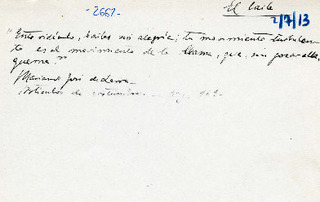 -2667-
El baile
2/7/13
"Estás riéndote, bailas sin alegría; tu movimiento turbulen-
to es el movimiento de la llama, que, sin gozar ella,
quema."
Mariano José de Larra
Artículos de costumbres